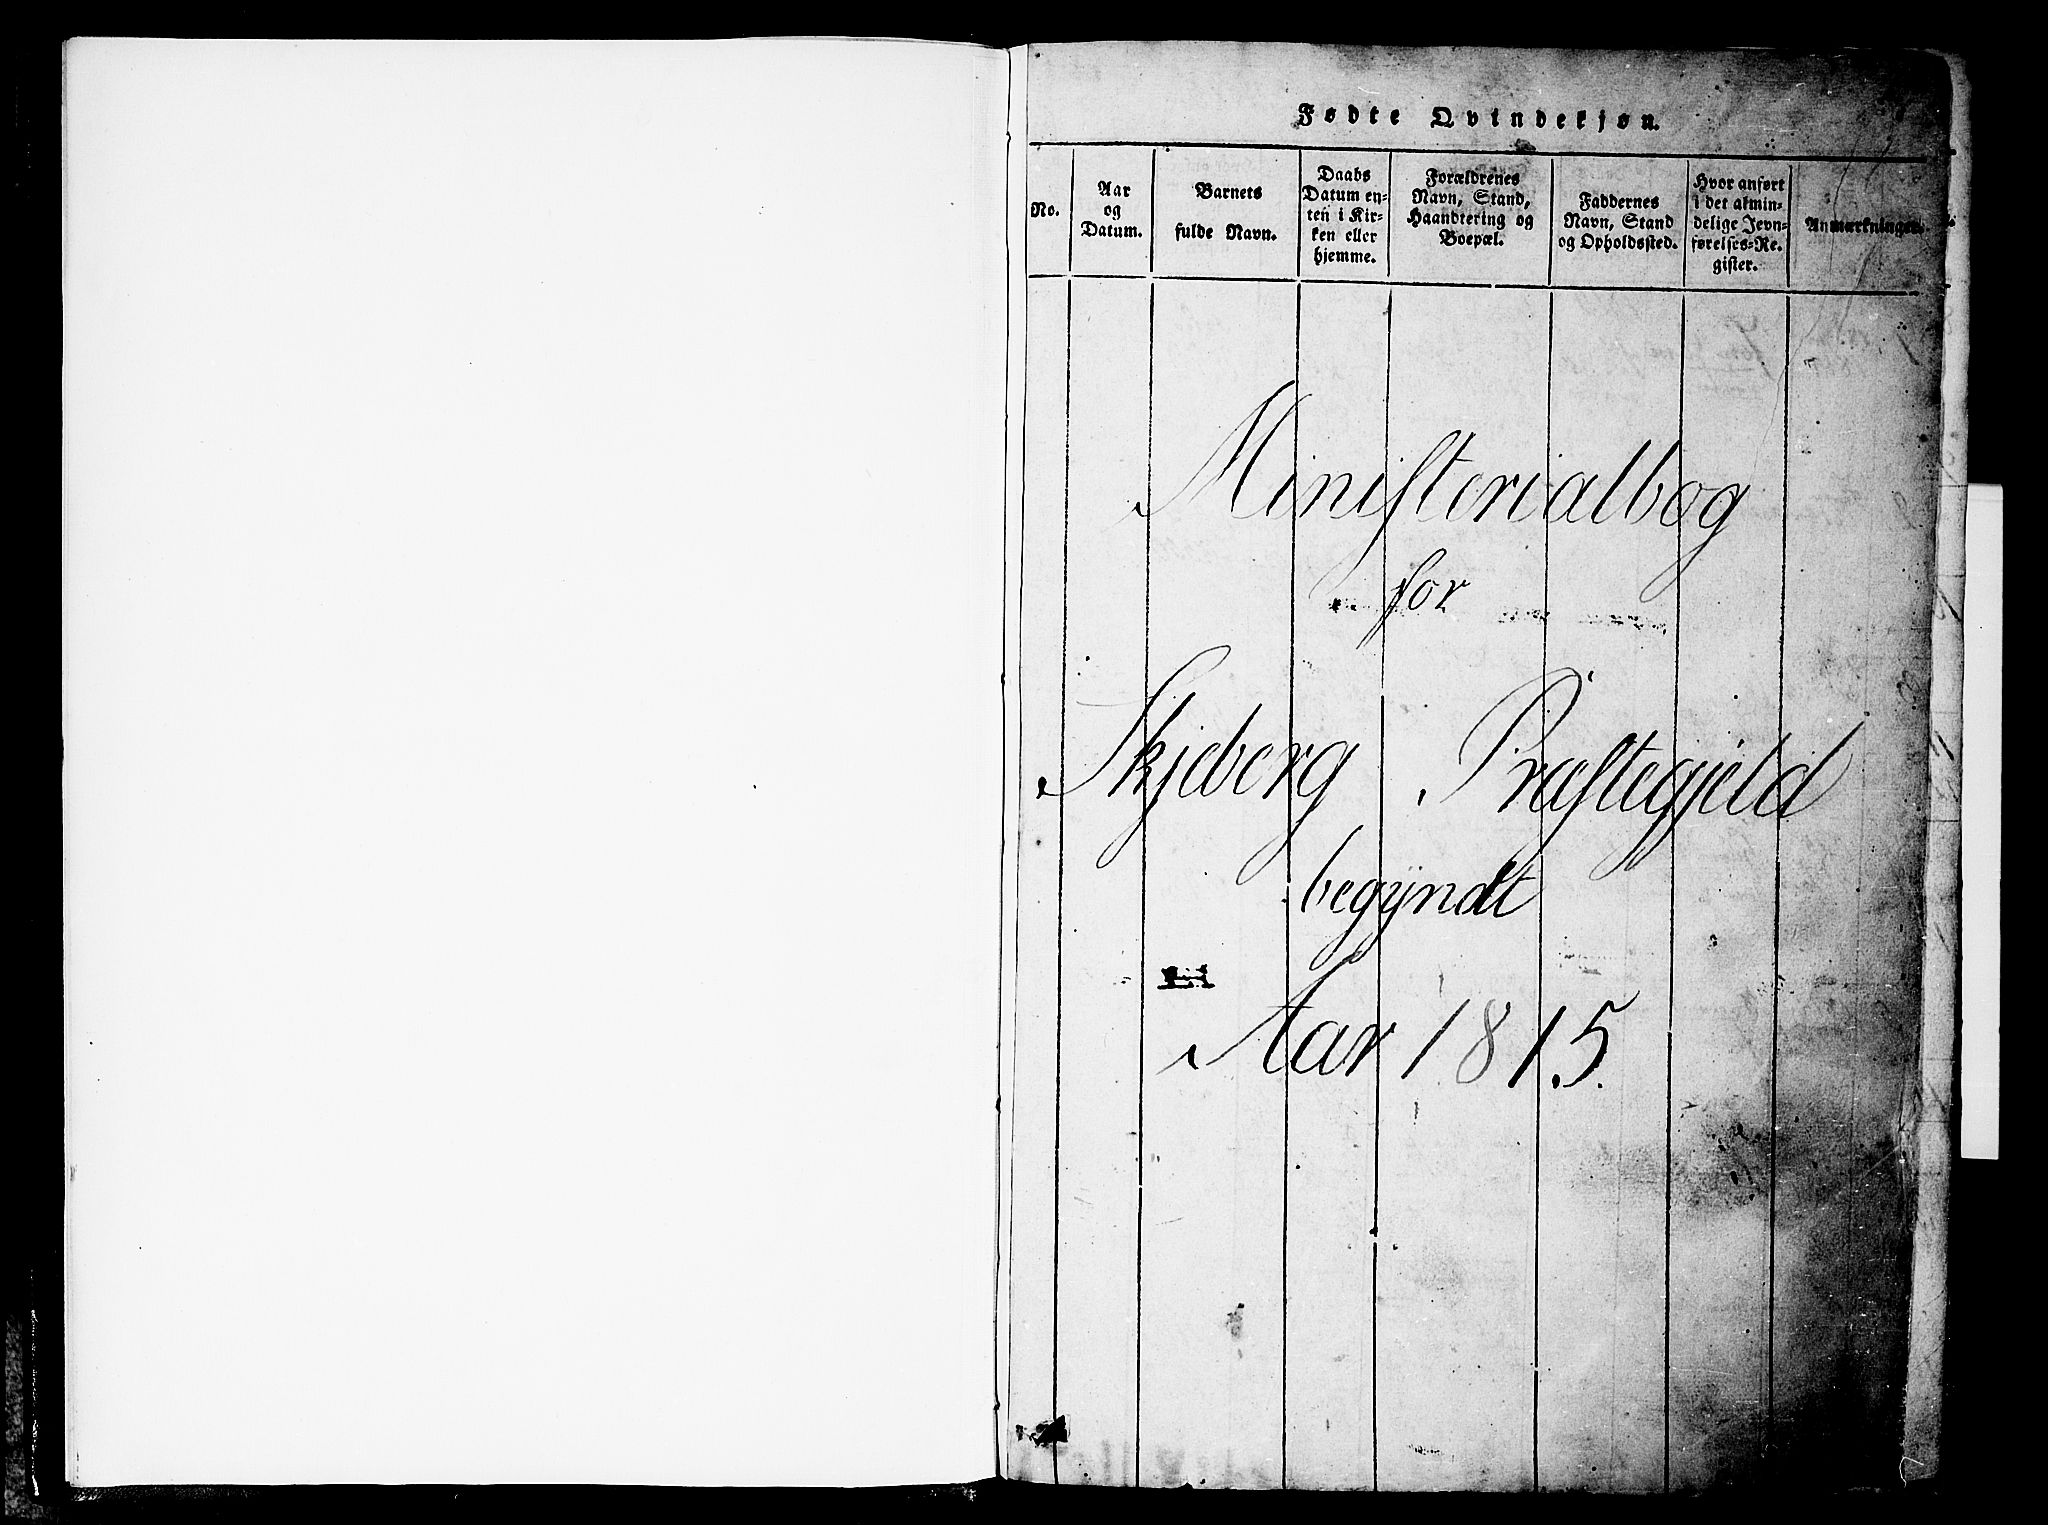 Fødte Qvindekjøn.
No.
Aar
og
Datum.
Barnets
fulde Navn.
Daabs
Datum en-
ten i Kir-
ken eller
hjemme.
Forældrenes
Navn, Stand,
Haandtering og
Boepæl.
Faddernes
Navn, Stand
og Opholdssted.
Hvor anført
i det almin-
delige Jevn-
førelses-Re-
gister.
Anmærkninger.
Ministerialbog
for
Skjeberg Præstegjeld
begyndt
Aar 1815.